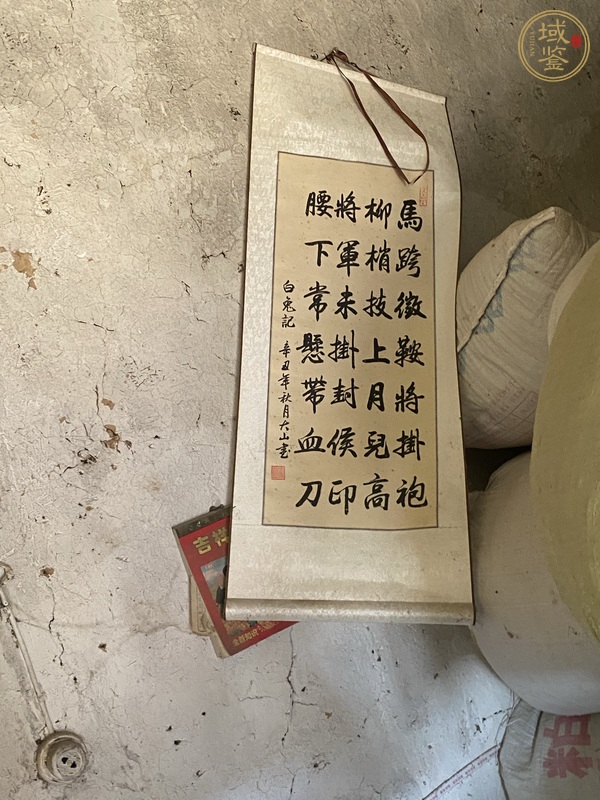 馬跨徵鞍將掛袍
柳梢技上月兒高
將軍未掛封侯印
腰下常懸帶血刀
白兔記 辛丑年秋月大山書
吉祥
域鉴
YUJIAN